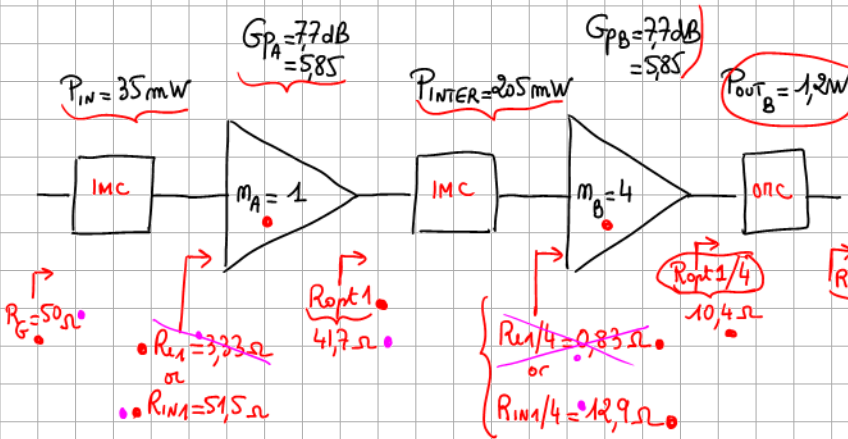 GPA=7,7dB
=5,85
GPB=7,7dB
=5,85
PIN=35mW
PINTER=205mW
POUTB=1,2W
IMC
mA=1
IMC
mB=4
OMC
RG=50Ω
Re1=3,33Ω
or
RIN1=51,5Ω
Ropt1
41,7Ω
Re1/4=0,83Ω
or
RIN1/4=12,9Ω
Ropt1/4
10,4Ω
R